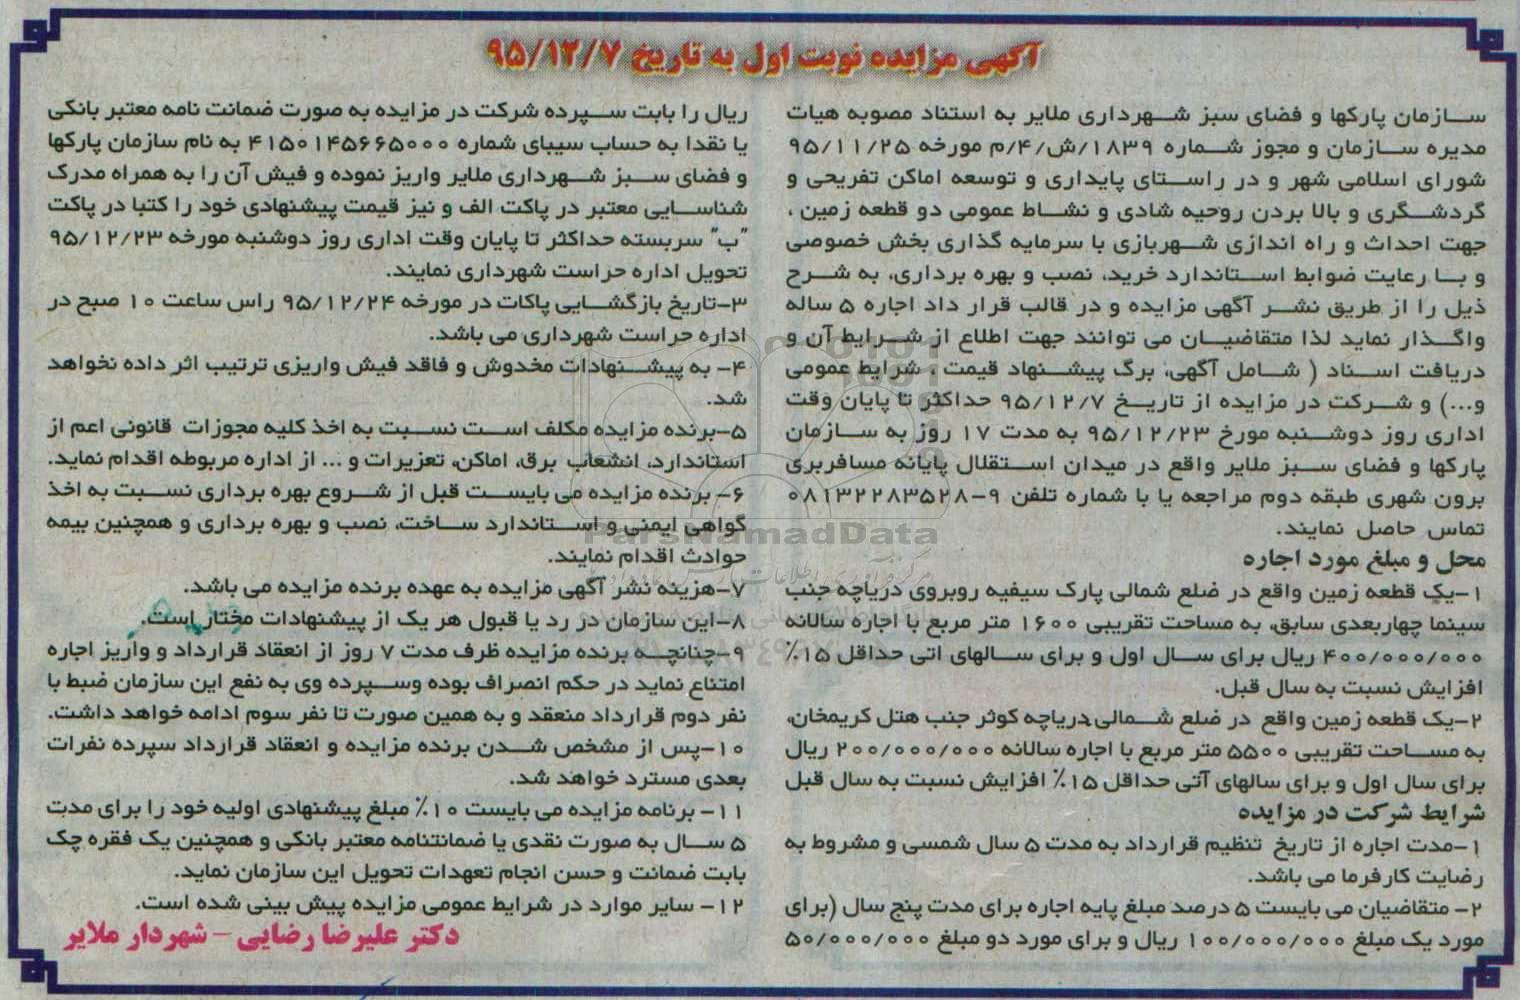 آگهی مزایده نوبت اول به تاریخ ۹۵/۱۲/۷
سازمان پارکها و فضای سبز شهرداری ملایر به استناد مصوبه هیات
مدیره سازمان و مجوز شماره ۱۸۳۹/ش/۴/م مورخه ۹۵/۱۱/۲۵
شورای اسلامی شهر و در راستای پایداری و توسعه اماکن تفریحی و
گردشگری و بالا بردن روحیه شادی و نشاط عمومی دو قطعه زمین ،
جهت احداث و راه اندازی شهربازی با سرمایه گذاری بخش خصوصی
و با رعایت ضوابط استاندارد خرید، نصب و بهره برداری، به شرح
ذیل را از طریق نشر آگهی مزایده و در قالب قرار داد اجاره ۵ ساله
واگذار نماید لذا متقاضیان می توانند جهت اطلاع از شرایط آن و
دریافت اسناد ( شامل آگهی، برگ پیشنهاد قیمت ، شرایط عمومی
و...) و شرکت در مزایده از تاریخ ۹۵/۱۲/۷ حداکثر تا پایان وقت
اداری روز دوشنبه مورخ ۹۵/۱۲/۲۳ به مدت ۱۷ روز به سازمان
پارکها و فضای سبز ملایر واقع در میدان استقلال پایانه مسافربری
برون شهری طبقه دوم مراجعه یا با شماره تلفن ۹-۰۸۱۳۲۲۸۳۵۲۸
تماس حاصل نمایند.
محل و مبلغ مورد اجاره
۱-یک قطعه زمین واقع در ضلع شمالی پارک سیفیه روبروی دریاچه جنب
سینما چهاربعدی سابق، به مساحت تقریبی ۱۶۰۰ متر مربع با اجاره سالانه
۴۰۰/۰۰۰/۰۰۰ ریال برای سال اول و برای سالهای اتی حداقل ۱۵٪
افزایش نسبت به سال قبل.
۲-یک قطعه زمین واقع در ضلع شمالی دریاچه کوثر جنب هتل کریمخان،
به مساحت تقریبی ۵۵۰۰ متر مربع با اجاره سالانه ۲۰۰/۰۰۰/۰۰۰ ریال
برای سال اول و برای سالهای آتی حداقل ۱۵٪ افزایش نسبت به سال قبل
شرایط شرکت در مزایده
۱-مدت اجاره از تاریخ تنظیم قرارداد به مدت ۵ سال شمسی و مشروط به
رضایت کارفرما می باشد.
۲- متقاضیان می بایست ۵ درصد مبلغ پایه اجاره برای مدت پنج سال (برای
مورد یک مبلغ ۱۰۰/۰۰۰/۰۰۰ ریال و برای مورد دو مبلغ ۵۰/۰۰۰/۰۰۰
ریال را بابت سپرده شرکت در مزایده به صورت ضمانت نامه معتبر بانکی
یا نقدا به حساب سیبای شماره ۴۱۵۰۱۴۵۶۶۵۰۰۰ به نام سازمان پارکها
و فضای سبز شهرداری ملایر واریز نموده و فیش آن را به همراه مدرک
شناسایی معتبر در پاکت الف و نیز قیمت پیشنهادی خود را کتبا در پاکت
"ب" سربسته حداکثر تا پایان وقت اداری روز دوشنبه مورخه ۹۵/۱۲/۲۳
تحویل اداره حراست شهرداری نمایند.
۳-تاریخ بازگشایی پاکات در مورخه ۹۵/۱۲/۲۴ راس ساعت ۱۰ صبح در
اداره حراست شهرداری می باشد.
۴- به پیشنهادات مخدوش و فاقد فیش واریزی ترتیب اثر داده نخواهد
شد.
۵-برنده مزایده مکلف است نسبت به اخذ کلیه مجوزات قانونی اعم از
استاندارد، انشعاب برق، اماکن، تعزیرات و ... از اداره مربوطه اقدام نماید.
۶- برنده مزایده می بایست قبل از شروع بهره برداری نسبت به اخذ
گواهی ایمنی و استاندارد ساخت، نصب و بهره برداری و همچنین بیمه
حوادث اقدام نمایند.
۷-هزینه نشر آگهی مزایده به عهده برنده مزایده می باشد.
۸-این سازمان در رد یا قبول هر یک از پیشنهادات مختار است.
۹-چنانچه برنده مزایده ظرف مدت ۷ روز از انعقاد قرارداد و واریز اجاره
امتناع نماید در حکم انصراف بوده وسپرده وی به نفع این سازمان ضبط با
نفر دوم قرارداد منعقد و به همین صورت تا نفر سوم ادامه خواهد داشت.
۱۰-پس از مشخص شدن برنده مزایده و انعقاد قرارداد سپرده نفرات
بعدی مسترد خواهد شد.
۱۱- برنامه مزایده می بایست ۱۰٪ مبلغ پیشنهادی اولیه خود را برای مدت
۵ سال به صورت نقدی یا ضمانتنامه معتبر بانکی و همچنین یک فقره چک
بابت ضمانت و حسن انجام تعهدات تحویل این سازمان نماید.
۱۲- سایر موارد در شرایط عمومی مزایده پیش بینی شده است.
دکتر علیرضا رضایی - شهردار ملایر
ParsNamadData